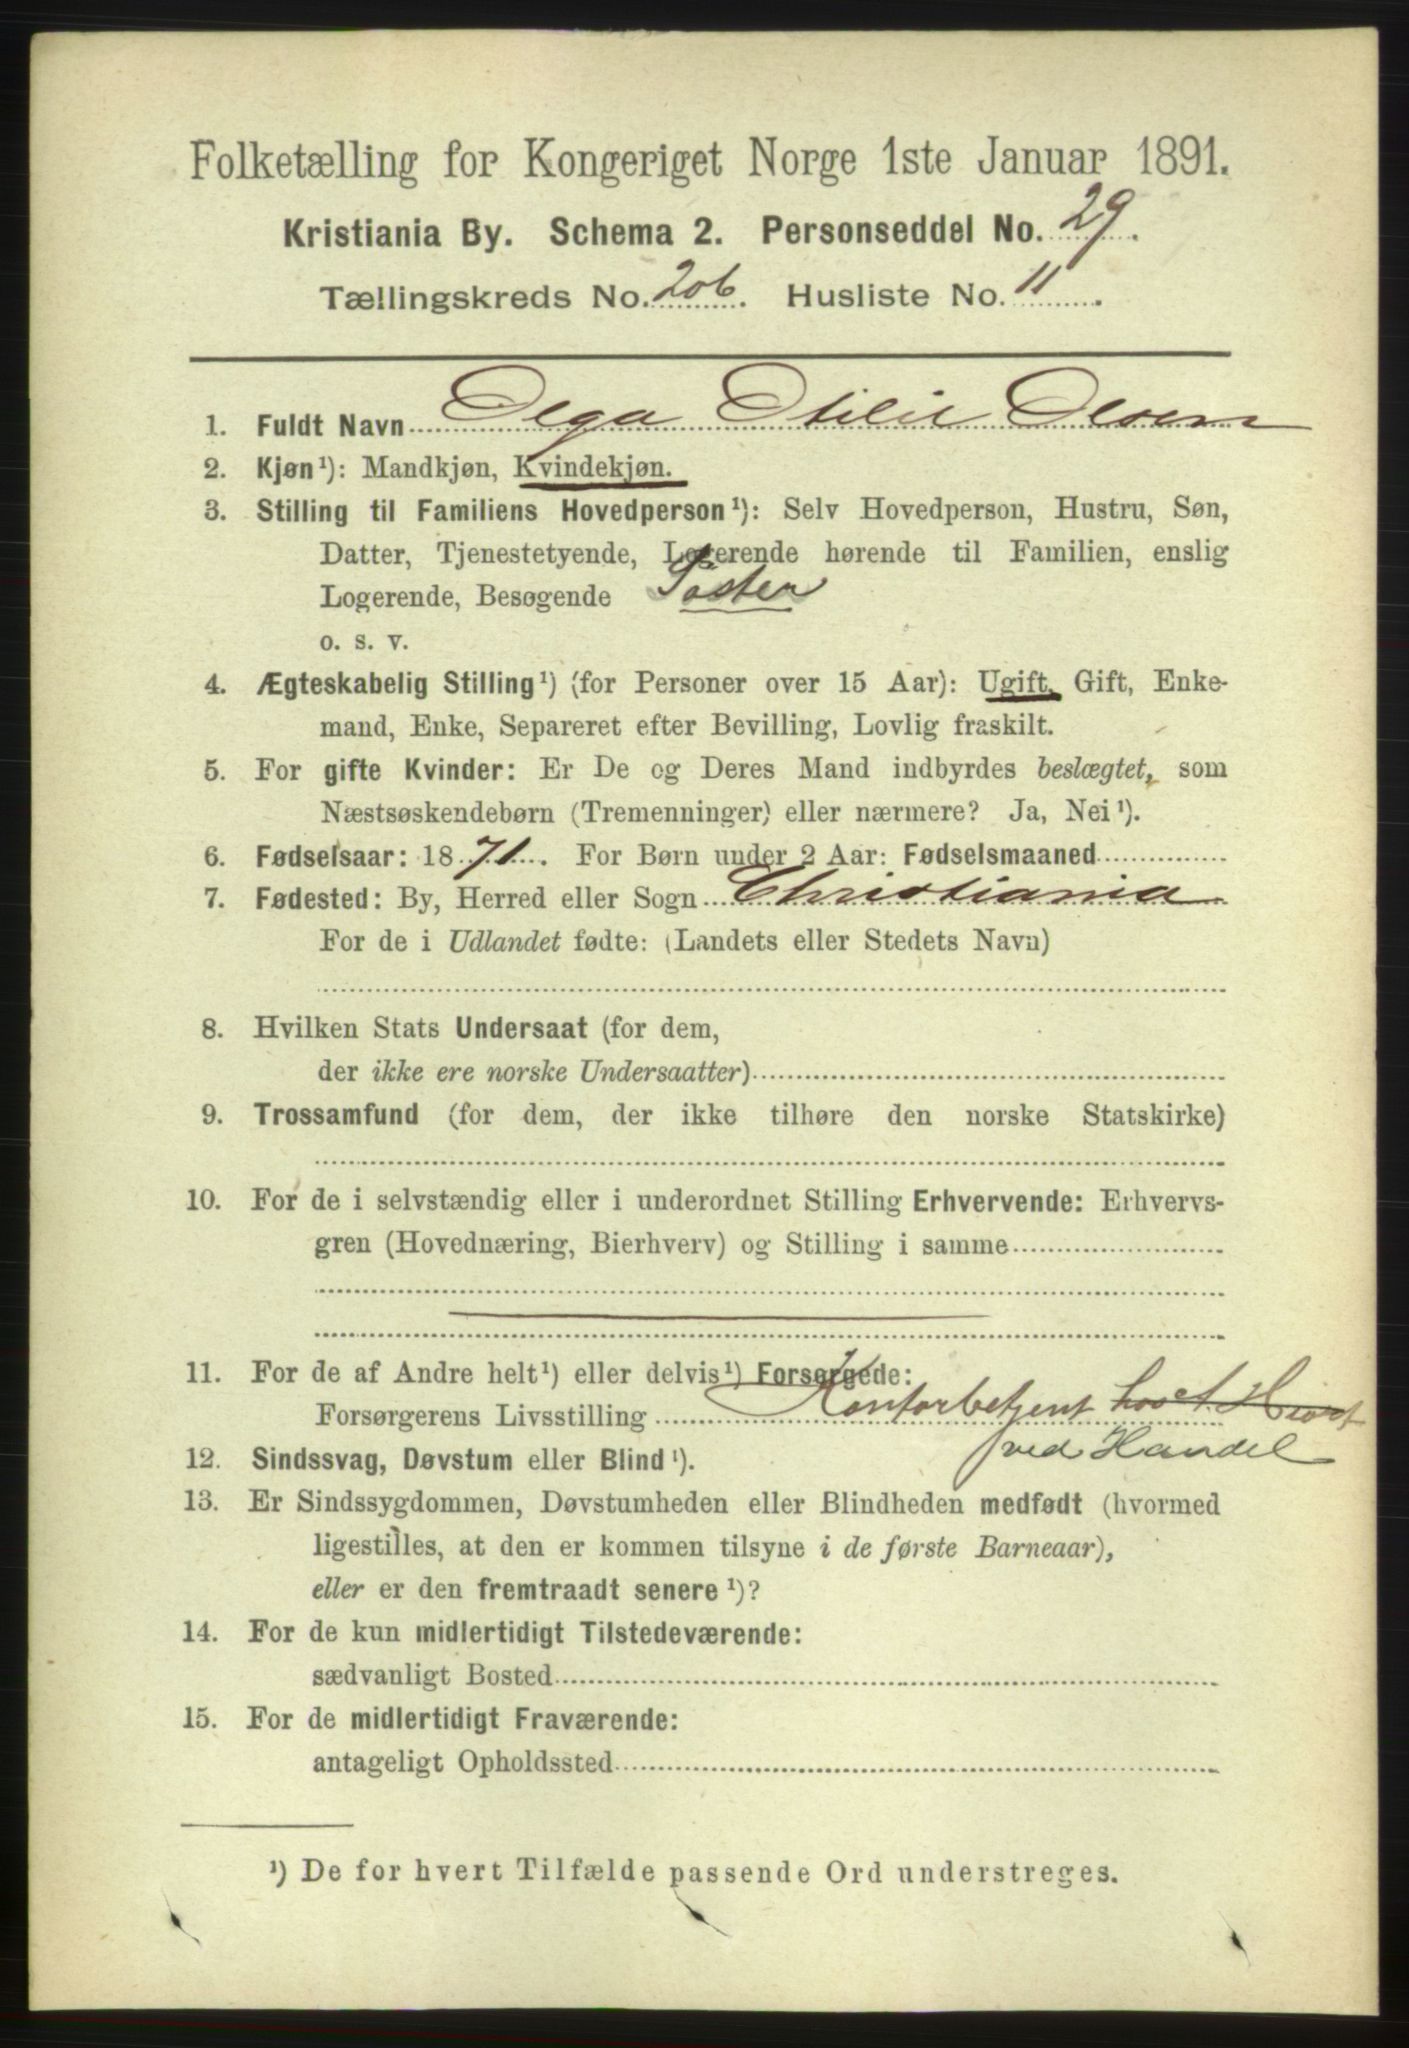 Folketælling for Kongeriget Norge 1ste Januar 1891.
Kristiania By. Schema 2. Personseddel No. 29.
Tællingskreds No. 206. Husliste No. 11.
1. Fuldt Navn Olga Otilie Olsen
2. Kjøn¹): Mandkjøn, Kvindekjøn.
3. Stilling til Familiens Hovedperson¹): Selv Hovedperson, Hustru, Søn,
Datter, Tjenestetyende, Logerende hørende til Familien, enslig
Logerende, Besøgende Søster
o. s. v.
4. Ægteskabelig Stilling¹) (for Personer over 15 Aar): Ugift, Gift, Enke-
mand, Enke, Separeret efter Bevilling, Lovlig fraskilt.
5. For gifte Kvinder: Er De og Deres Mand indbyrdes beslægtet, som
Næstsøskendebørn (Tremenninger) eller nærmere? Ja, Nei¹).
6. Fødselsaar: 1871. For Børn under 2 Aar: Fødselsmaaned
7. Fødested: By, Herred eller Sogn Christiania
For de i Udlandet fødte: (Landets eller Stedets Navn)
8. Hvilken Stats Undersaat (for dem,
der ikke ere norske Undersaatter)
9. Trossamfund (for dem, der ikke tilhøre den norske Statskirke)
10. For de i selvstændig eller i underordnet Stilling Erhvervende: Erhvervs-
gren (Hovednæring, Bierhverv) og Stilling i samme
11. For de af Andre helt¹) eller delvis¹) Forsørgede:
Forsørgerens Livsstilling Kontorbetjent hos
ved Handel
12. Sindssvag, Døvstum eller Blind¹).
13. Er Sindssygdommen, Døvstumheden eller Blindheden medfødt (hvormed
ligestilles, at den er kommen tilsyne i de første Barneaar),
eller er den fremtraadt senere¹)?
14. For de kun midlertidigt Tilstedeværende:
sædvanligt Bosted
15. For de midlertidigt Fraværende:
antageligt Opholdssted
¹) De for hvert Tilfælde passende Ord understreges.